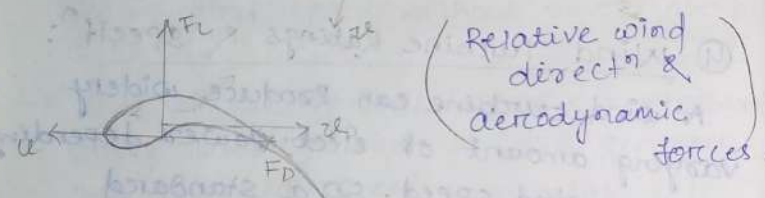 FL
Relative wind
directⁿ &
aerodynamic
forces
u
FD